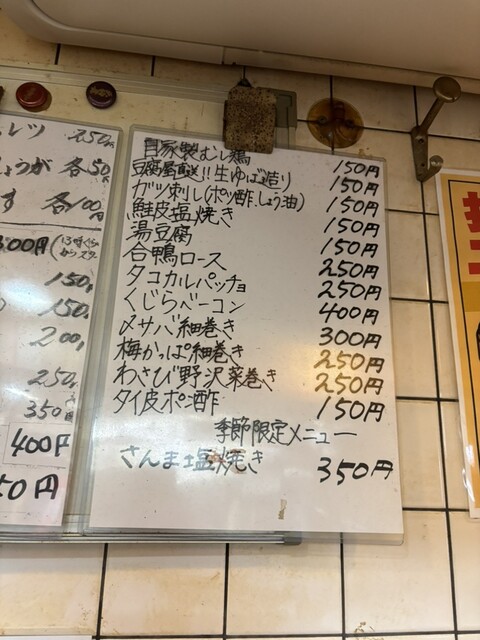 レツ 250円
ょうが 各50円
す 各100円
300円
150円
150円
200円
250円
350円
400円
50円
自家製むし鶏 150円
豆腐屋直送!!生ゆば造り 150円
ガツ刺し(ポン酢、しょう油) 150円
鮭皮塩焼き 150円
湯豆腐 150円
合鴨ロース 250円
タコカルパッチョ 250円
くじらベーコン 400円
〆サバ細巻き 300円
梅かっぱ細巻き 250円
わさび野沢菜巻き 250円
タイ皮ポン酢 150円
季節限定メニュー
さんま塩焼き 350円